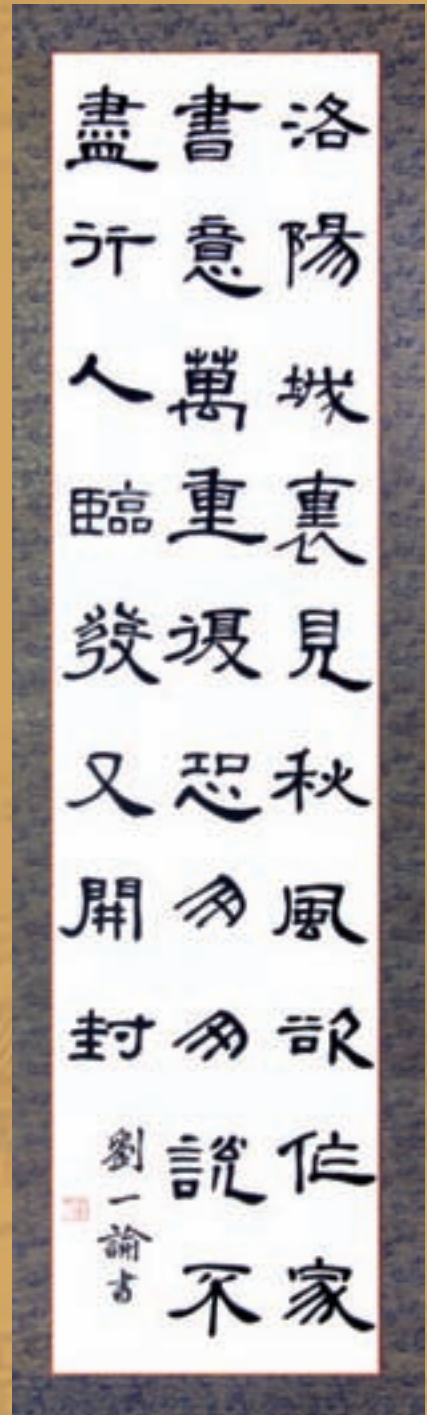 洛陽城裏見秋風欲作家
書意萬重復恐匆匆說不
盡行人臨發又開封
劉一諭書